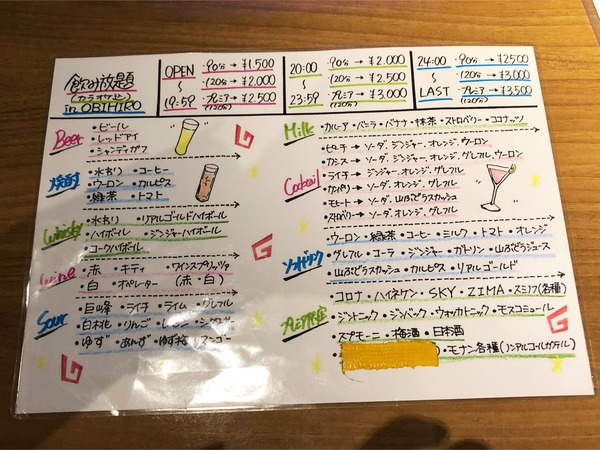 飲み放題
(カラオケ込)
in OBIHIRO
OPEN
~
19:59
・90分→¥1.500
・120分→¥2.000
・プレミア→¥2.500
(120分)
20:00
~
23:59
・90分→¥2.000
・120分→¥2.500
プレミア→¥3,000
(120分)
24:00
~
LAST
・90分→¥2500
・120分→¥3,000
プレミア→¥3,500
(120分)
Beer
・ビール
・レッドアイ
・シャンディガフ
焼酎
・水わり ・コーヒー
・ウーロン ・カルピス
・緑茶 ・トマト
Whisky
・水わり ・リアルゴールドハイボール
・ハイボール ・ジンジャーハイボール
・コークハイボール
Wine
・赤 ・キティ ・ワインスプリッツァ
・白 ・オペレーター (赤・白)
Sour
・巨峰 ・ライチ ・ライム ・グレフル
・白桃 ・りんご ・レモン
・ゆず ・あんず ・ゆず梅 ・マンゴー
Milk ・カルーア ・バニラ ・バナナ ・抹茶 ・ストロベリー ・ココナッツ
Cocktail
・ピーチ → ソーダ、ジンジャー、オレンジ、ウーロン
・カシス → ソーダ、ジンジャー、オレンジ、グレフル、ウーロン
・ライチ → ジンジャー、オレンジ、グレフル
・カンパリ → ソーダ、オレンジ、グレフル
・モヒート → ソーダ、山ぶどうスカッシュ
・ストロベリー → ソーダ、オレンジ、グレフル
ソフトドリンク
・ウーロン ・緑茶 ・コーヒー ・ミルク ・トマト ・オレンジ
・グレフル ・コーラ ・ジンジャー ・ガラナ ・山ぶどうジュース
・山ぶどうスカッシュ ・カルピス ・リアルゴールド
プレミア限定
・コロナ ・ハイネケン ・SKY ・ZIMA ・スミノフ(各種)
・ジントニック ・ジンバック ・ウォッカトニック ・モスコミュール
・スプモーニ ・梅酒 ・日本酒
・モナン各種(ノンアルコールカクテル)